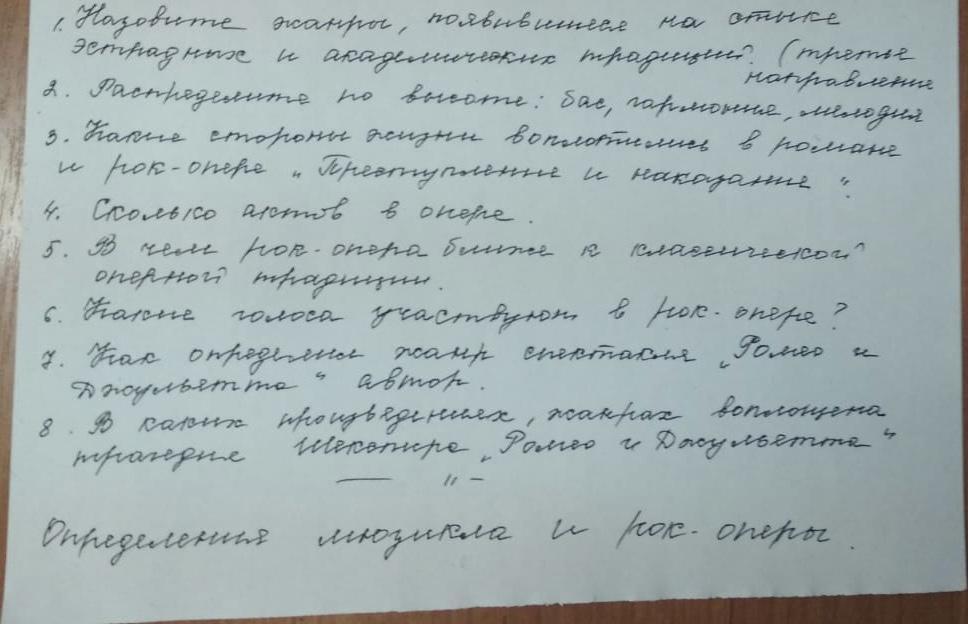 1. Назовите жанры, появившиеся на стыке
эстрадных и академических традиций. (третье
направление
2. Распределите по высоте: бас, гармония, мелодия
3. Какие стороны жизни воплотились в романе
и рок-опере „Преступление и наказание".
4. Сколько актов в опере.
5. В чем рок-опера ближе к классической
оперной традиции.
6. Какие голоса участвуют в рок-опере?
7. Как определил жанр спектакля „Ромео и
Джульетта" автор.
8. В каких произведениях, жанрах воплощена
трагедия Шекспира „Ромео и Джульетта"
— " –
Определения мюзикла и рок-оперы.